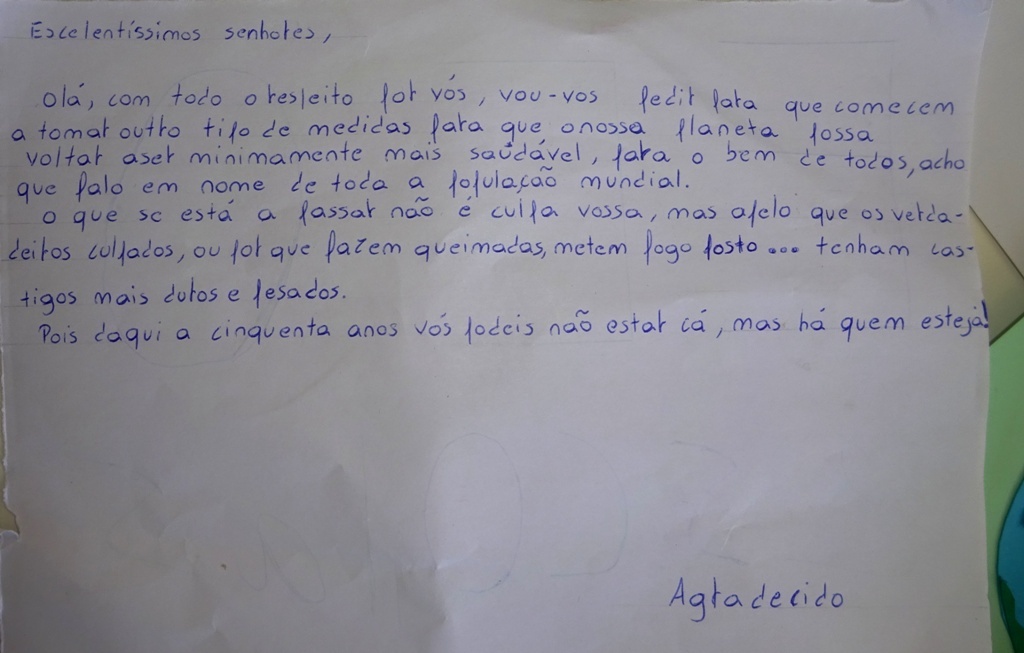 Escelentíssimos senhores,
Olá, com todo o respeito por vós, vou-vos pedir para que comecem
a tomar outro tipo de medidas para que o nosso planeta possa
voltar a ser minimamente mais saúdável, para o bem de todos, acho
que falo em nome de toda a população mundial.
O que se está a passar não é culpa vossa, mas apelo que os verda-
deiros culpados, ou por que fazem queimadas, metem fogo posto... tenham cas-
tigos mais duros e pesados.
Pois daqui a cinquenta anos vós podeis não estar cá, mas há quem esteja!
Agradecido